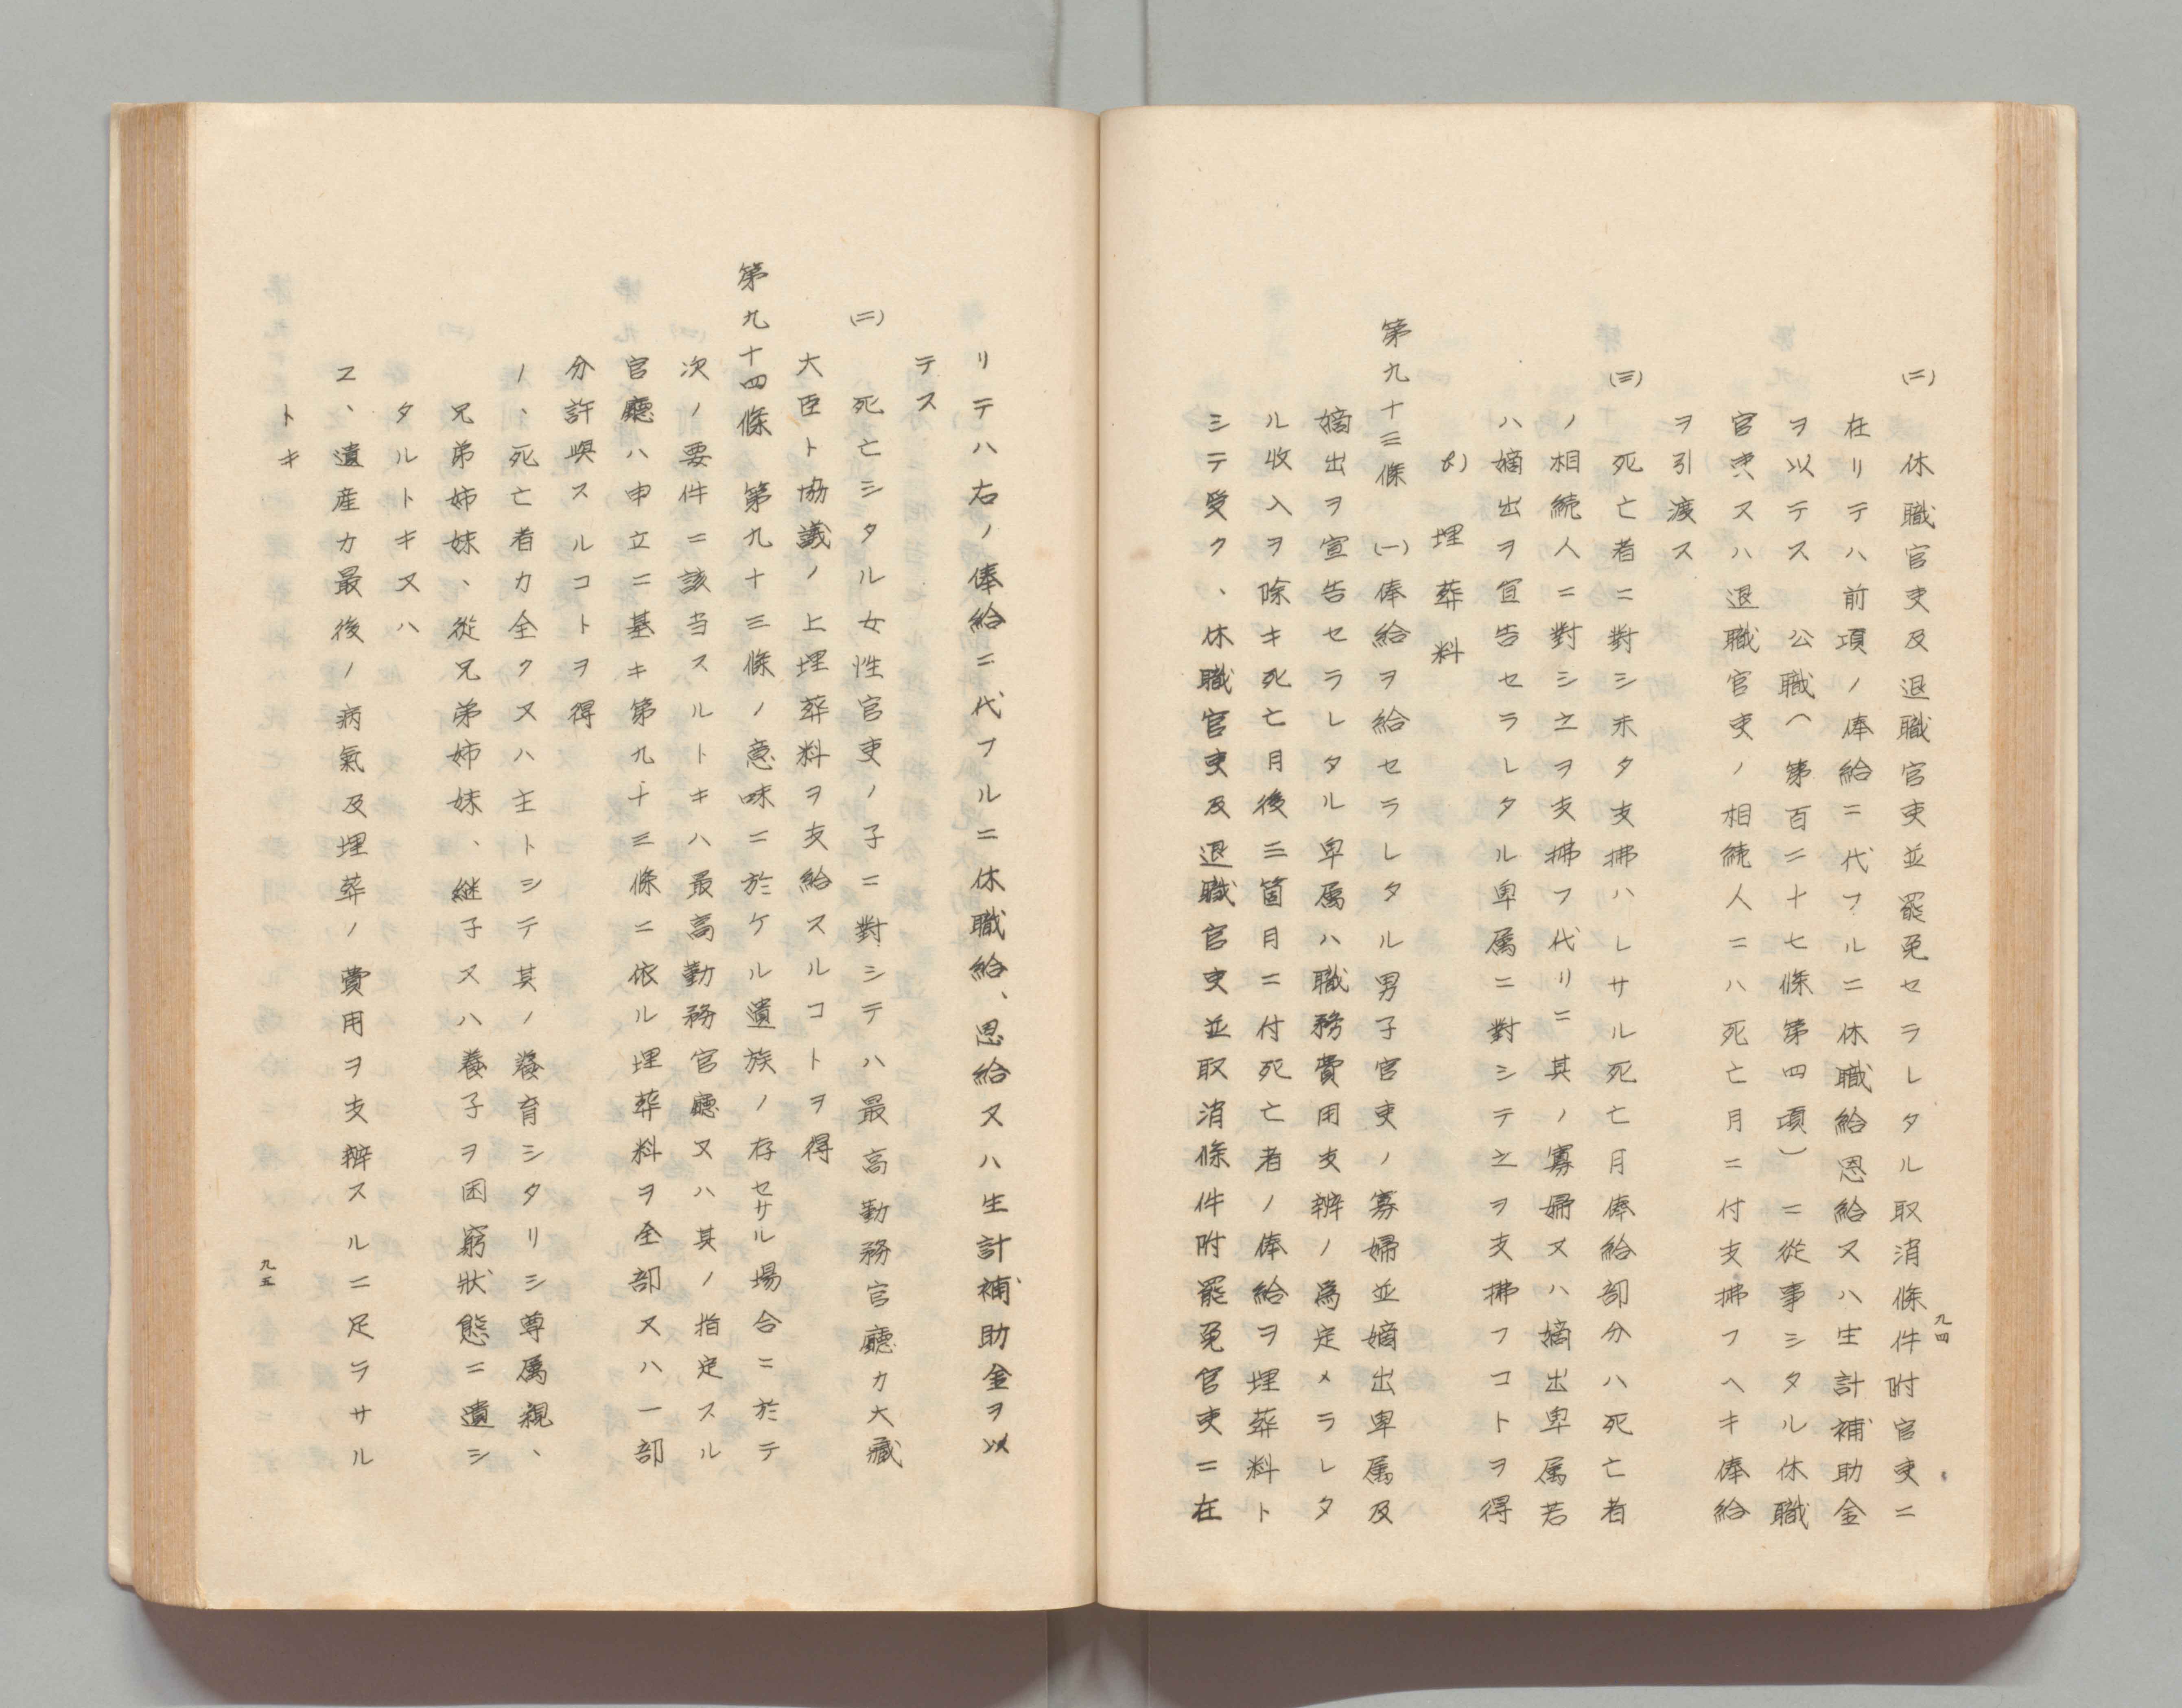 九四
(二) 休職官吏及退職官吏並罷免セラレタル取消條件附官吏ニ
在リテハ前項ノ俸給ニ代フルニ休職給恩給又ハ生計補助金
ヲ以テス 公職(第百二十七條第四項)ニ從事シタル休職
官吏又ハ退職官吏ノ相続人ニハ死亡月ニ付支拂フヘキ俸給
ヲ引渡ス
(三) 死亡者ニ對シ未タ支拂ハレサル死亡月俸給部分ハ死亡者
ノ相続人ニ對シ之ヲ支拂フ代リニ其ノ寡婦又ハ嫡出卑属若
ハ嫡出ヲ宣告セラレタル卑属ニ對シテ之ヲ支拂フコトヲ得
b) 埋葬料
第九十三條 (一)俸給ヲ給セラレタル男子官吏ノ寡婦並嫡出卑属及
嫡出ヲ宣告セラレタル卑属ハ職務費用支辨ノ爲定メラレタ
ル收入ヲ除キ死亡月後三箇月ニ付死亡者ノ俸給ヲ埋葬料ト
シテ受ク、休職官吏及退職官吏並取消條件附罷免官吏ニ在
リテハ右ノ俸給ニ代フルニ休職給、恩給又ハ生計補助金ヲ以
テス
(二) 死亡シタル女性官吏ノ子ニ對シテハ最高勤務官廳カ大藏
大臣ト協議ノ上埋葬料ヲ支給スルコトヲ得
第九十四條 第九十三條ノ意味ニ於ケル遺族ノ存セサル場合ニ於テ
次ノ要件ニ該当スルトキハ最高勤務官廳又ハ其ノ指定スル
官廳ハ申立ニ基キ第九十三條ニ依ル埋葬料ヲ全部又ハ一部
分許與スルコトヲ得
ノ、死亡者カ全ク又ハ主トシテ其ノ養育シタリシ尊属親、
兄弟姉妹、從兄弟姉妹、継子又ハ養子ヲ困窮狀態ニ遺シ
タルトキ又ハ
ヱ、遺産カ最後ノ病氣及埋葬ノ費用ヲ支辨スルニ足ラサル
トキ
九五